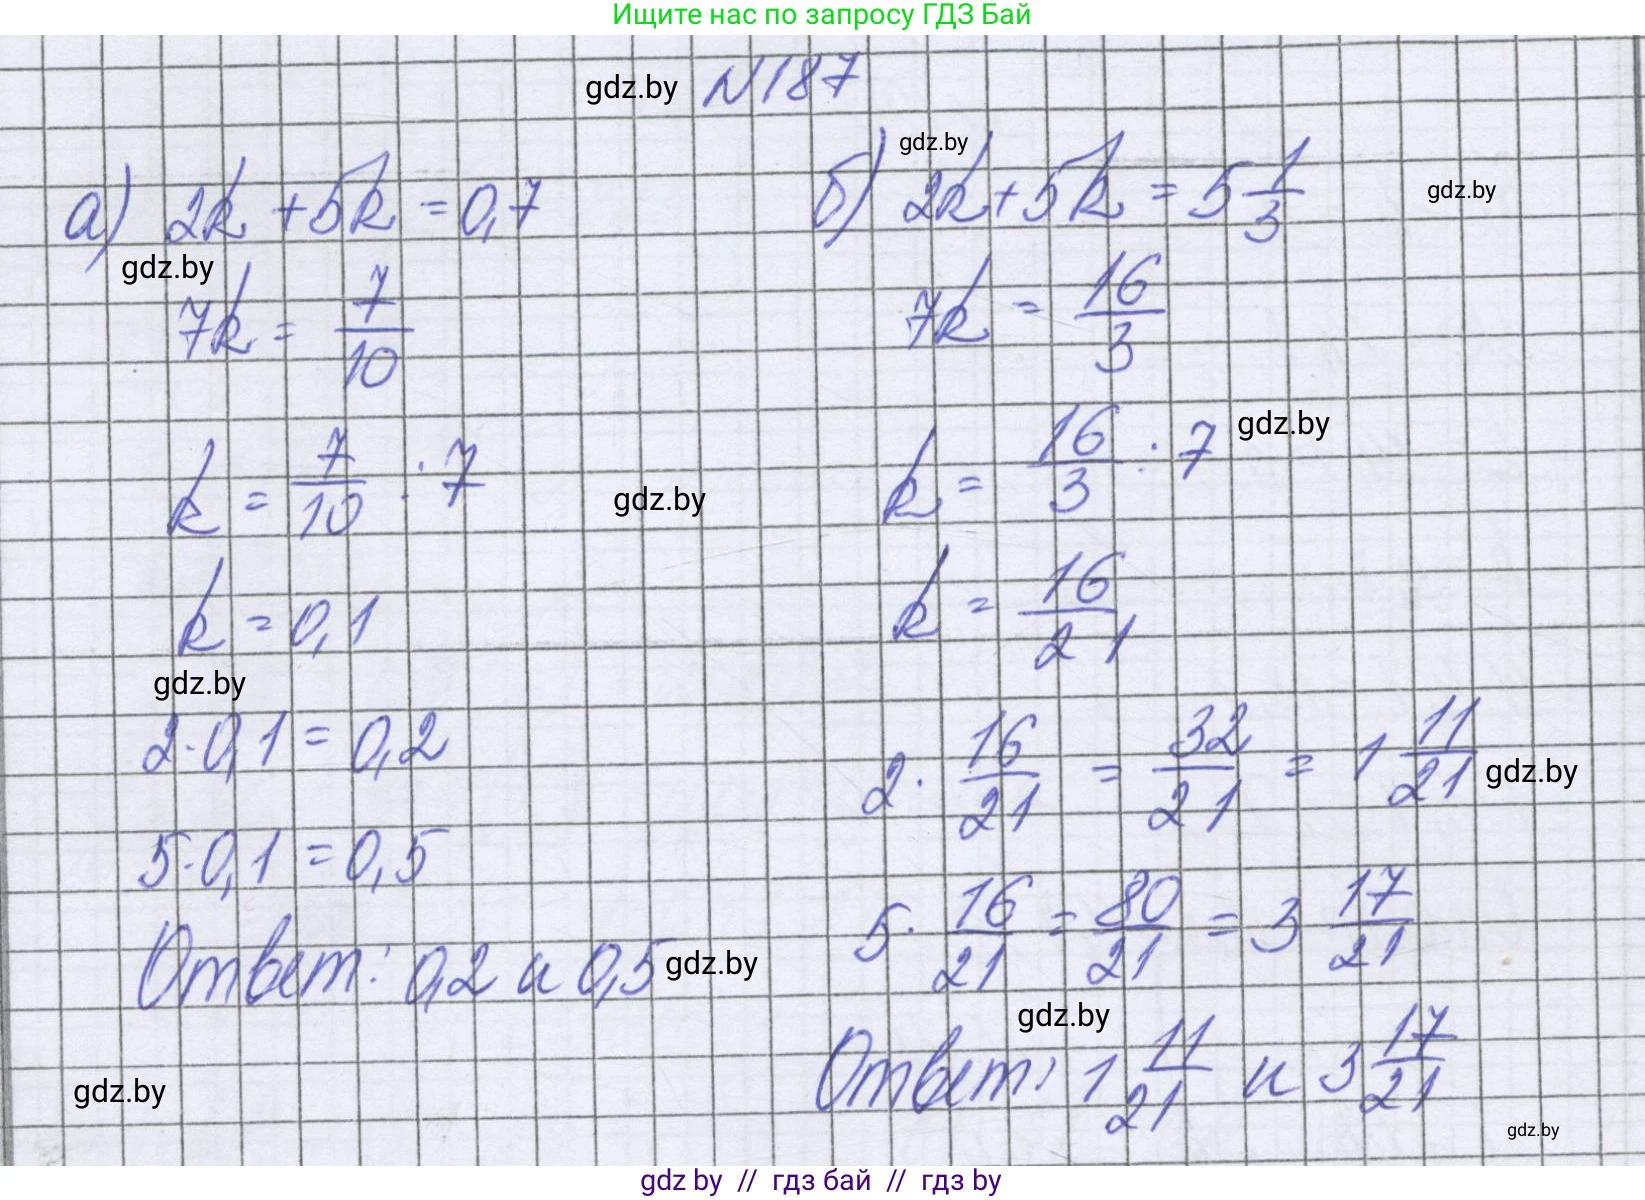 Ищите нас по запросу ГДЗ Бай
gdz.by
N187
gdz.by
gdz.by
а) 2k + 5k = 0,7
gdz.by
7k = 7/10
k = 7/10 : 7
gdz.by
k = 0,1
gdz.by
2·0,1 = 0,2
5·0,1 = 0,5
Ответ: 0,2 и 0,5
gdz.by
gdz.by
б) 2k + 5k = 5 1/3
7k = 16/3
k = 16/3 : 7
gdz.by
k = 16/21
2· 16/21 = 32/21 = 1 11/21
gdz.by
5· 16/21 = 80/21 = 3 17/21
gdz.by
Ответ: 1 11/21 и 3 17/21
gdz.by
gdz.by // гдз бай // гдз by